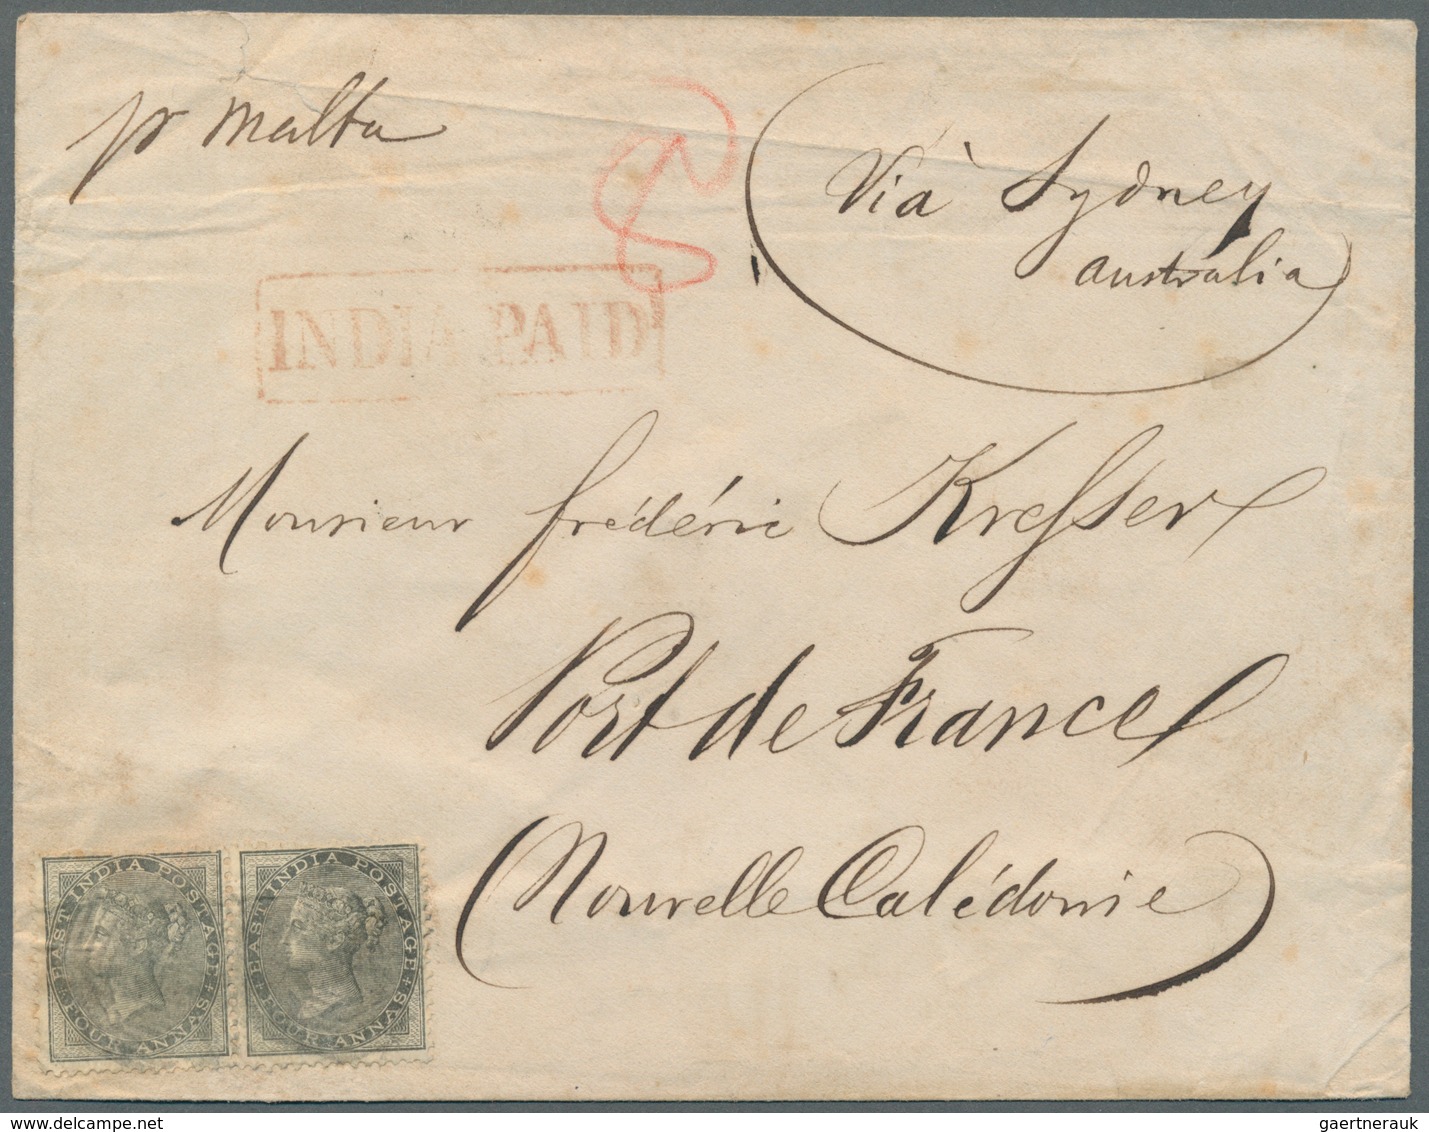 pr Malta
8
Vià Sydney
Australia
INDIA PAID
Monsieur frédéric Kresser
Port de France
(Nouvelle Calédonie)
EAST INDIA POSTAGE
FOUR ANNAS
EAST INDIA POSTAGE
FOUR ANNAS
delcampe.net
gaertnerauk